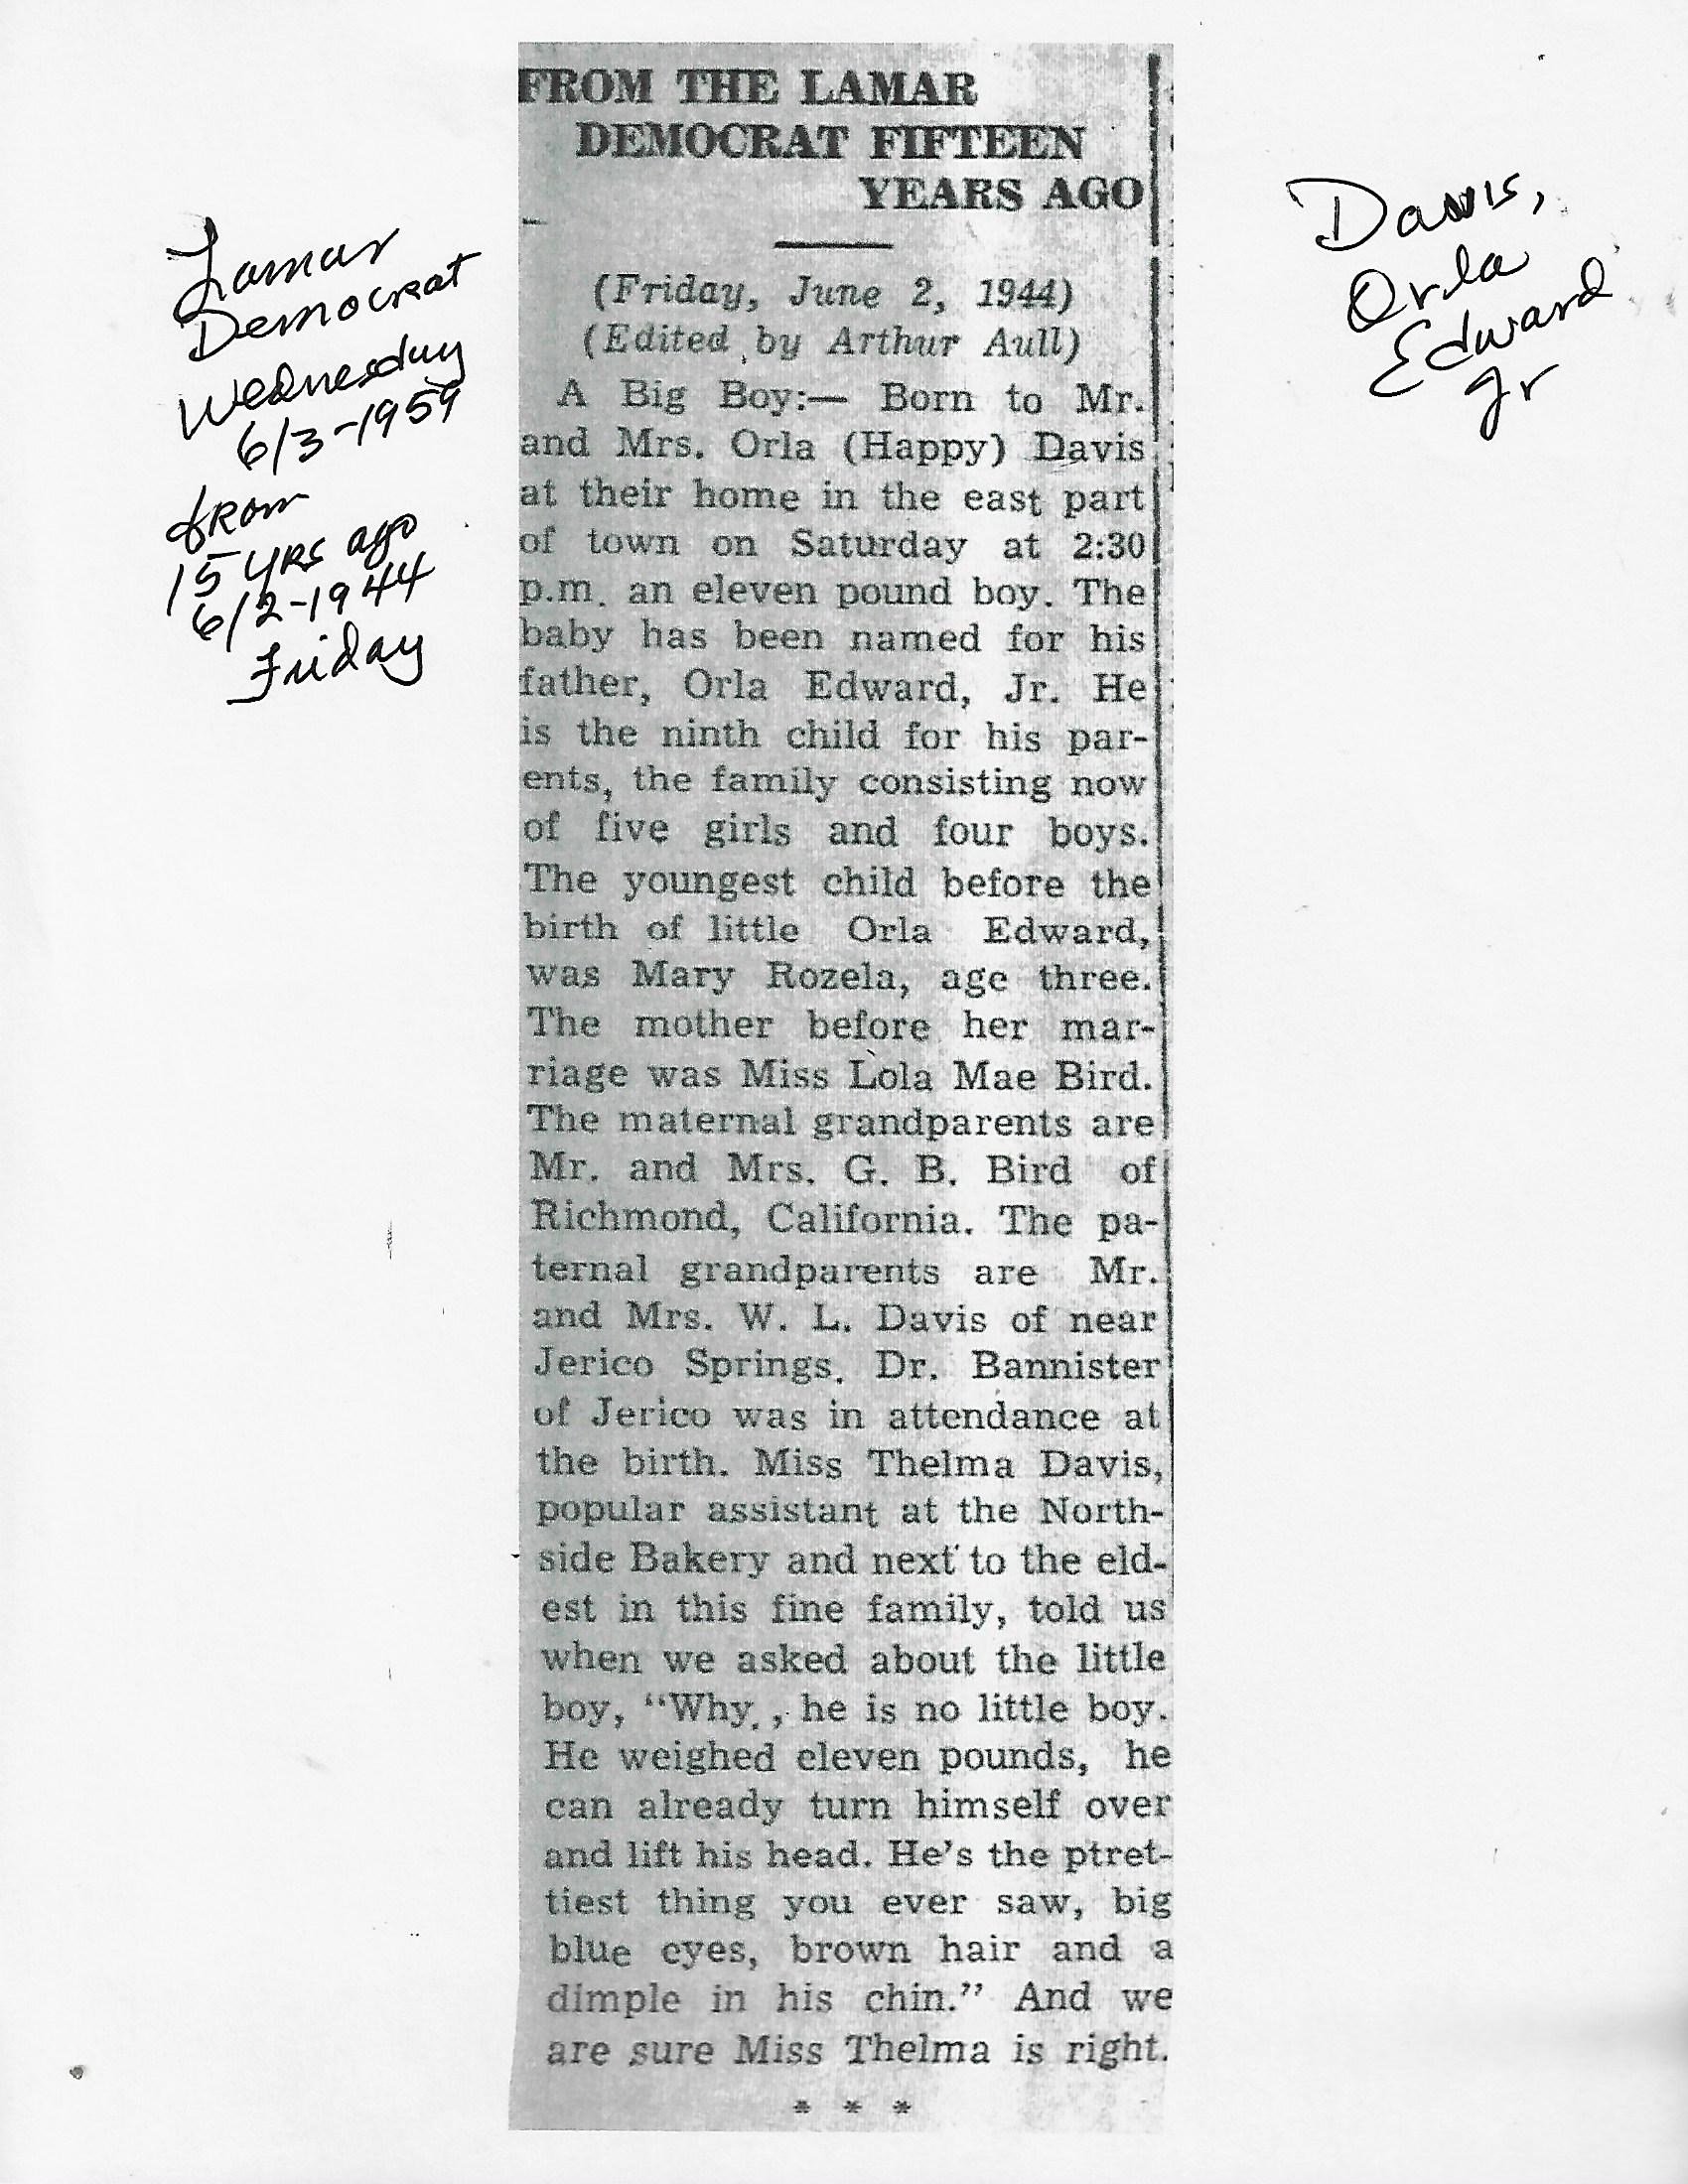 FROM THE LAMAR
DEMOCRAT FIFTEEN
YEARS AGO
(Friday, June 2, 1944)
(Edited by Arthur Aull)
A Big Boy:— Born to Mr.
and Mrs. Orla (Happy) Davis
at their home in the east part
of town on Saturday at 2:30
p.m. an eleven pound boy. The
baby has been named for his
father, Orla Edward, Jr. He
is the ninth child for his par-
ents, the family consisting now
of five girls and four boys.
The youngest child before the
birth of little Orla Edward,
was Mary Rozela, age three.
The mother before her mar-
riage was Miss Lola Mae Bird.
The maternal grandparents are
Mr. and Mrs. G. B. Bird of
Richmond, California. The pa-
ternal grandparents are Mr.
and Mrs. W. L. Davis of near
Jerico Springs. Dr. Bannister
of Jerico was in attendance at
the birth. Miss Thelma Davis,
popular assistant at the North-
side Bakery and next to the eld-
est in this fine family, told us
when we asked about the little
boy, “Why., he is no little boy.
He weighed eleven pounds, he
can already turn himself over
and lift his head. He’s the ptret-
tiest thing you ever saw, big
blue eyes, brown hair and a
dimple in his chin.” And we
are sure Miss Thelma is right.
* * *
Lamar
Democrat
Wednesday
6/3-1959
from
15 yrs ago
6/2-1944
Friday
Davis,
Orla
Edward
Jr